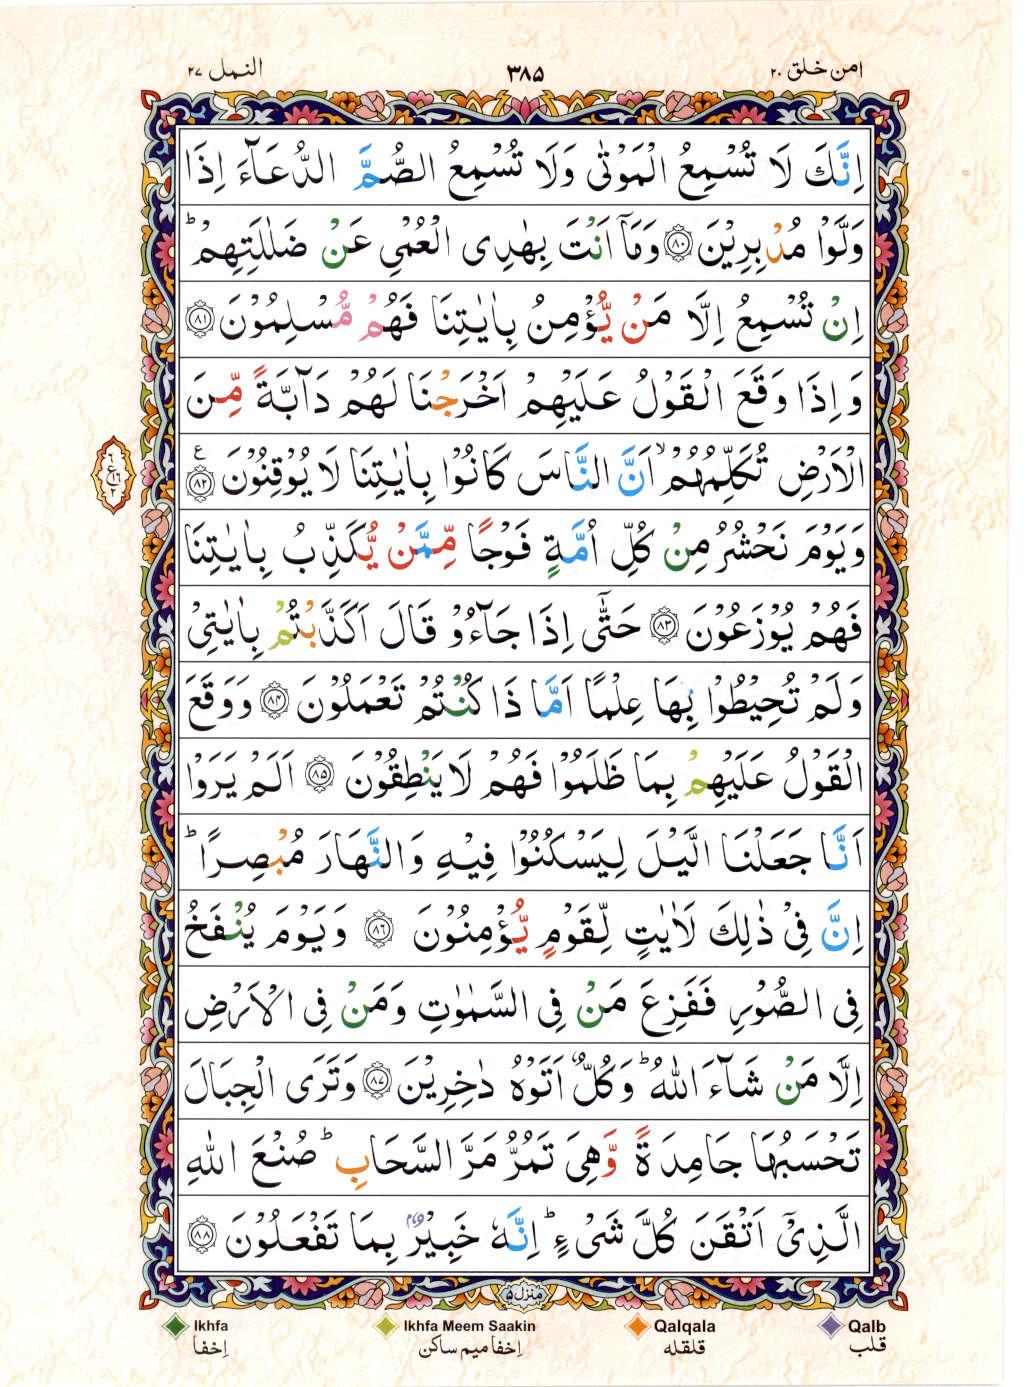 النمل ٢٧
٣٨۵
امن خلق ٢٠
اِنَّكَ لَا تُسْمِعُ الْمَوْتٰى وَلَا تُسْمِعُ الصُّمَّ الدُّعَآءَ اِذَا
وَلَّوْا مُدْبِرِيْنَ ﴿٨٠﴾ وَمَآ اَنْتَ بِهٰدِى الْعُمْىِ عَنْ ضَلٰلَتِهِمْ ؕ
اِنْ تُسْمِعُ اِلَّا مَنْ يُّؤْمِنُ بِاٰيٰتِنَا فَهُمْ مُّسْلِمُوْنَ ﴿٨١﴾
وَ اِذَا وَقَعَ الْقَوْلُ عَلَيْهِمْ اَخْرَجْنَا لَهُمْ دَآبَّةً مِّنَ
الْاَرْضِ تُكَلِّمُهُمْ ۙ اَنَّ النَّاسَ كَانُوْا بِاٰيٰتِنَا لَا يُوْقِنُوْنَ ﴿٨٢﴾ ع
وَيَوْمَ نَحْشُرُ مِنْ كُلِّ اُمَّةٍ فَوْجًا مِّمَّنْ يُّكَذِّبُ بِاٰيٰتِنَا
فَهُمْ يُوْزَعُوْنَ ﴿٨٣﴾ حَتّٰٓى اِذَا جَآءُوْ قَالَ اَكَذَّبْتُمْ بِاٰيٰتِىْ
وَلَمْ تُحِيْطُوْا بِهَا عِلْمًا اَمَّا ذَا كُنْتُمْ تَعْمَلُوْنَ ﴿٨۴﴾ وَوَقَعَ
الْقَوْلُ عَلَيْهِمْ بِمَا ظَلَمُوْا فَهُمْ لَا يَنْطِقُوْنَ ﴿٨۵﴾ اَلَمْ يَرَوْا
اَنَّا جَعَلْنَا الَّيْلَ لِيَسْكُنُوْا فِيْهِ وَالنَّهَارَ مُبْصِرًا ؕ
اِنَّ فِىْ ذٰلِكَ لَاٰيٰتٍ لِّقَوْمٍ يُّؤْمِنُوْنَ ﴿٨٦﴾ وَيَوْمَ يُنْفَخُ
فِى الصُّوْرِ فَفَزِعَ مَنْ فِى السَّمٰوٰتِ وَمَنْ فِى الْاَرْضِ
اِلَّا مَنْ شَآءَ اللّٰهُ ؕ وَكُلٌّ اَتَوْهُ دٰخِرِيْنَ ﴿٨٧﴾ وَتَرَى الْجِبَالَ
تَحْسَبُهَا جَامِدَةً وَّهِىَ تَمُرُّ مَرَّ السَّحَابِ ؕ صُنْعَ اللّٰهِ
الَّذِىْٓ اَتْقَنَ كُلَّ شَىْءٍ ؕ اِنَّهٗ خَبِيْرٌۢ بِمَا تَفْعَلُوْنَ ﴿٨٨﴾
منزل ۵
Ikhfa
Ikhfa Meem Saakin
Qalqala
Qalb
اِخفا
اِخفا میم ساکن
قلقله
قلب